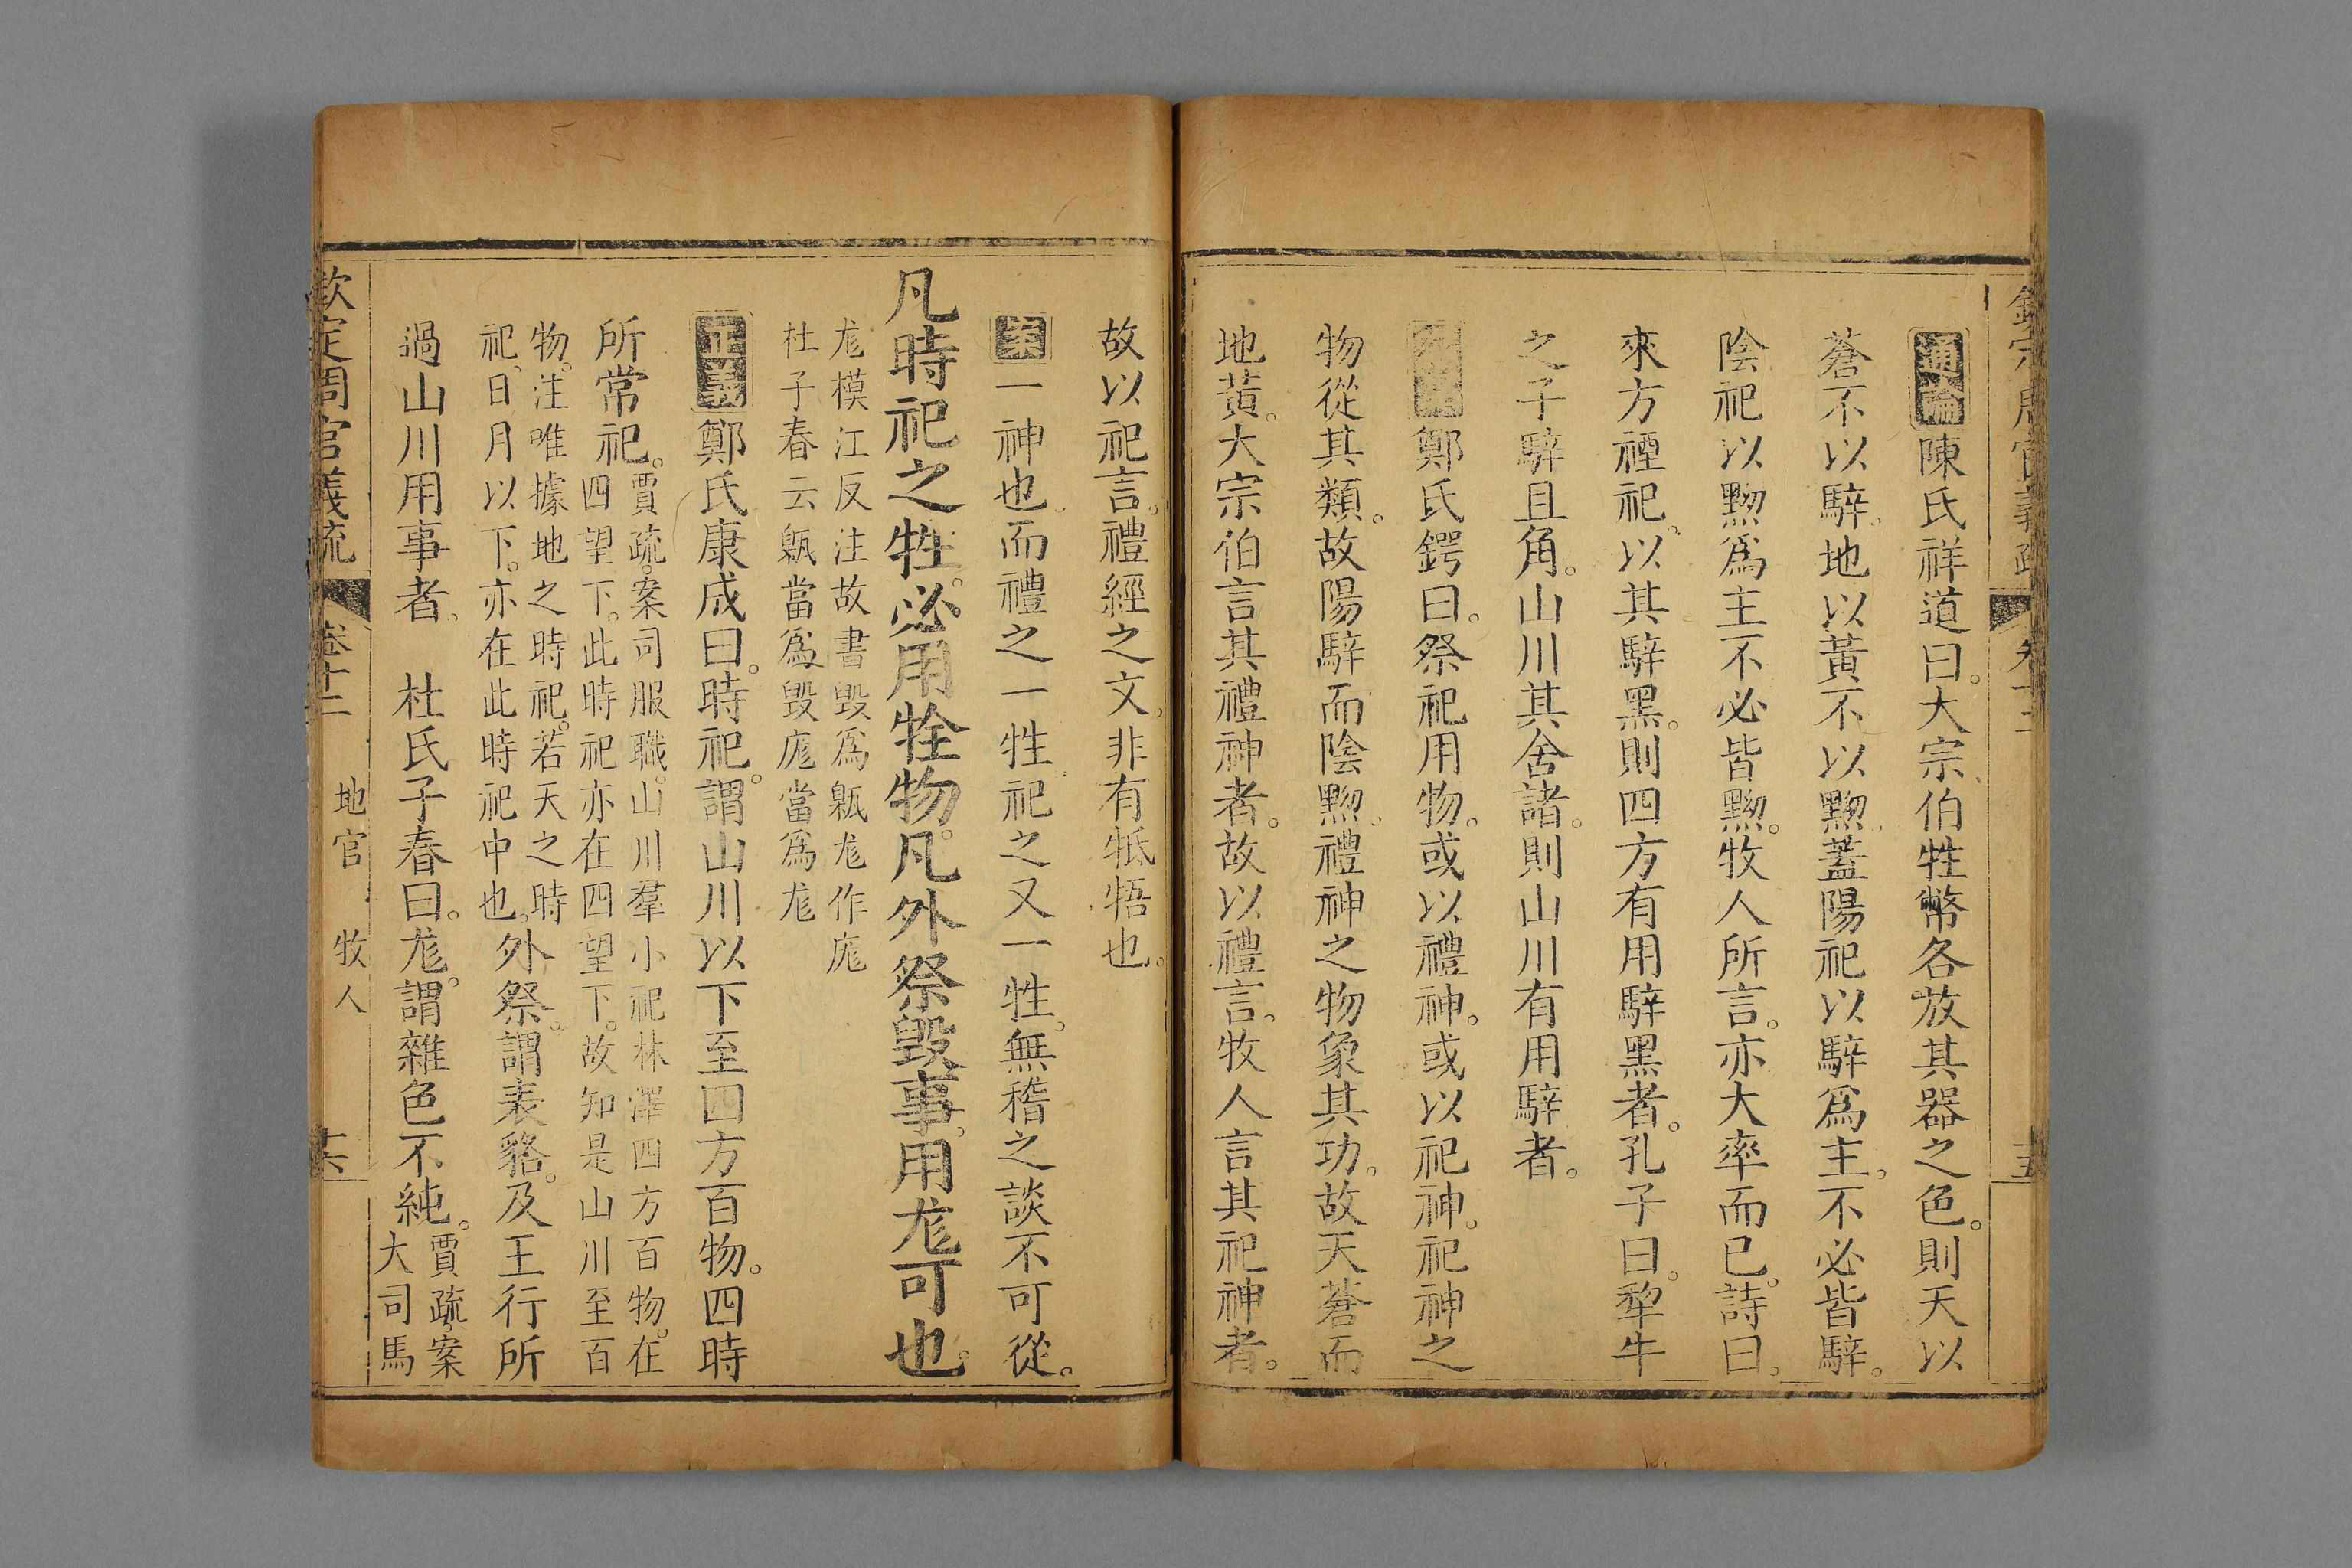 欽定周官義疏 卷十二 十五
通論陳氏祥道曰。大宗伯牲幣各放其器之色。則天以
蒼不以騂。地以黃不以黝。蓋陽祀以騂爲主。不必皆騂。
陰祀以黝爲主不必皆黝。牧人所言。亦大率而已。詩曰。
來方禋祀。以其騂黑。則四方有用騂黑者。孔子曰。犂牛
之子騂且角。山川其舍諸。則山川有用騂者。
鄭氏鍔曰。祭祀用物。或以禮神。或以祀神。祀神之
物從其類。故陽騂而陰黝。禮神之物象其功。故天蒼而
地黃。大宗伯言其禮神者。故以禮言。牧人言其祀神者。
故以祀言。禮經之文。非有牴牾也。
案一神也。而禮之一牲。祀之又一牲。無稽之談不可從。
凡時祀之牲。必用牷物。凡外祭毀事。用尨可也。
尨模江反注故書毀爲甈尨作庬
杜子春云甈當爲毀庬當爲尨
正義鄭氏康成曰。時祀。謂山川以下至四方百物。四時
所常祀。
賈疏。案司服職。山川羣小祀林澤四方百物。在
四望下。此時祀亦在四望下。故知是山川至百
物。注唯據地之時祀。若天之時
祀。日月以下。亦在此時祀中也。
外祭。謂表貉。及王行所
過山川用事者。 杜氏子春曰。尨。謂雜色不純。
賈疏。案
大司馬
欽定周官義疏 卷十二 地官 牧人 十六